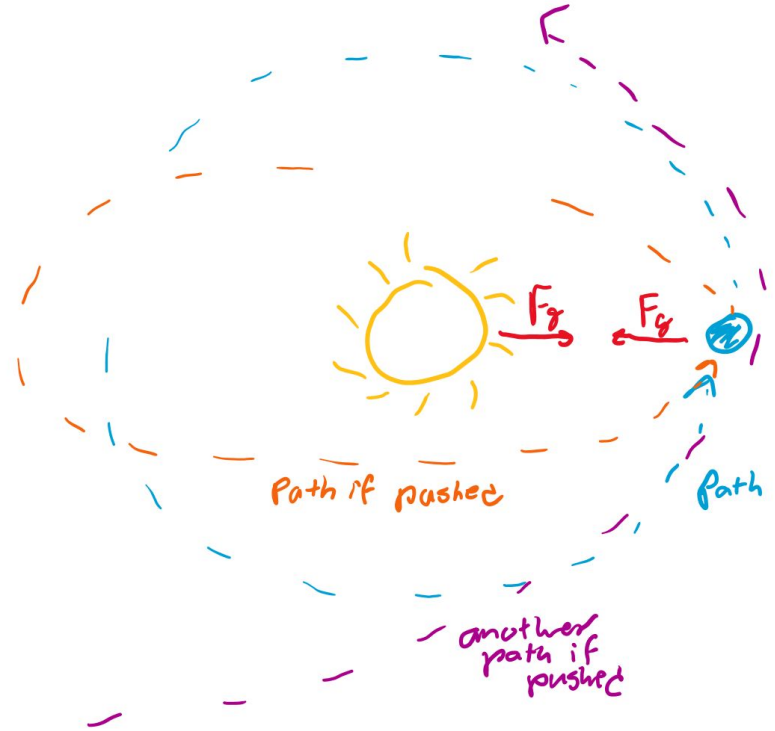 Fg
Fg
Path if pushed
Path
another
path if
pushed